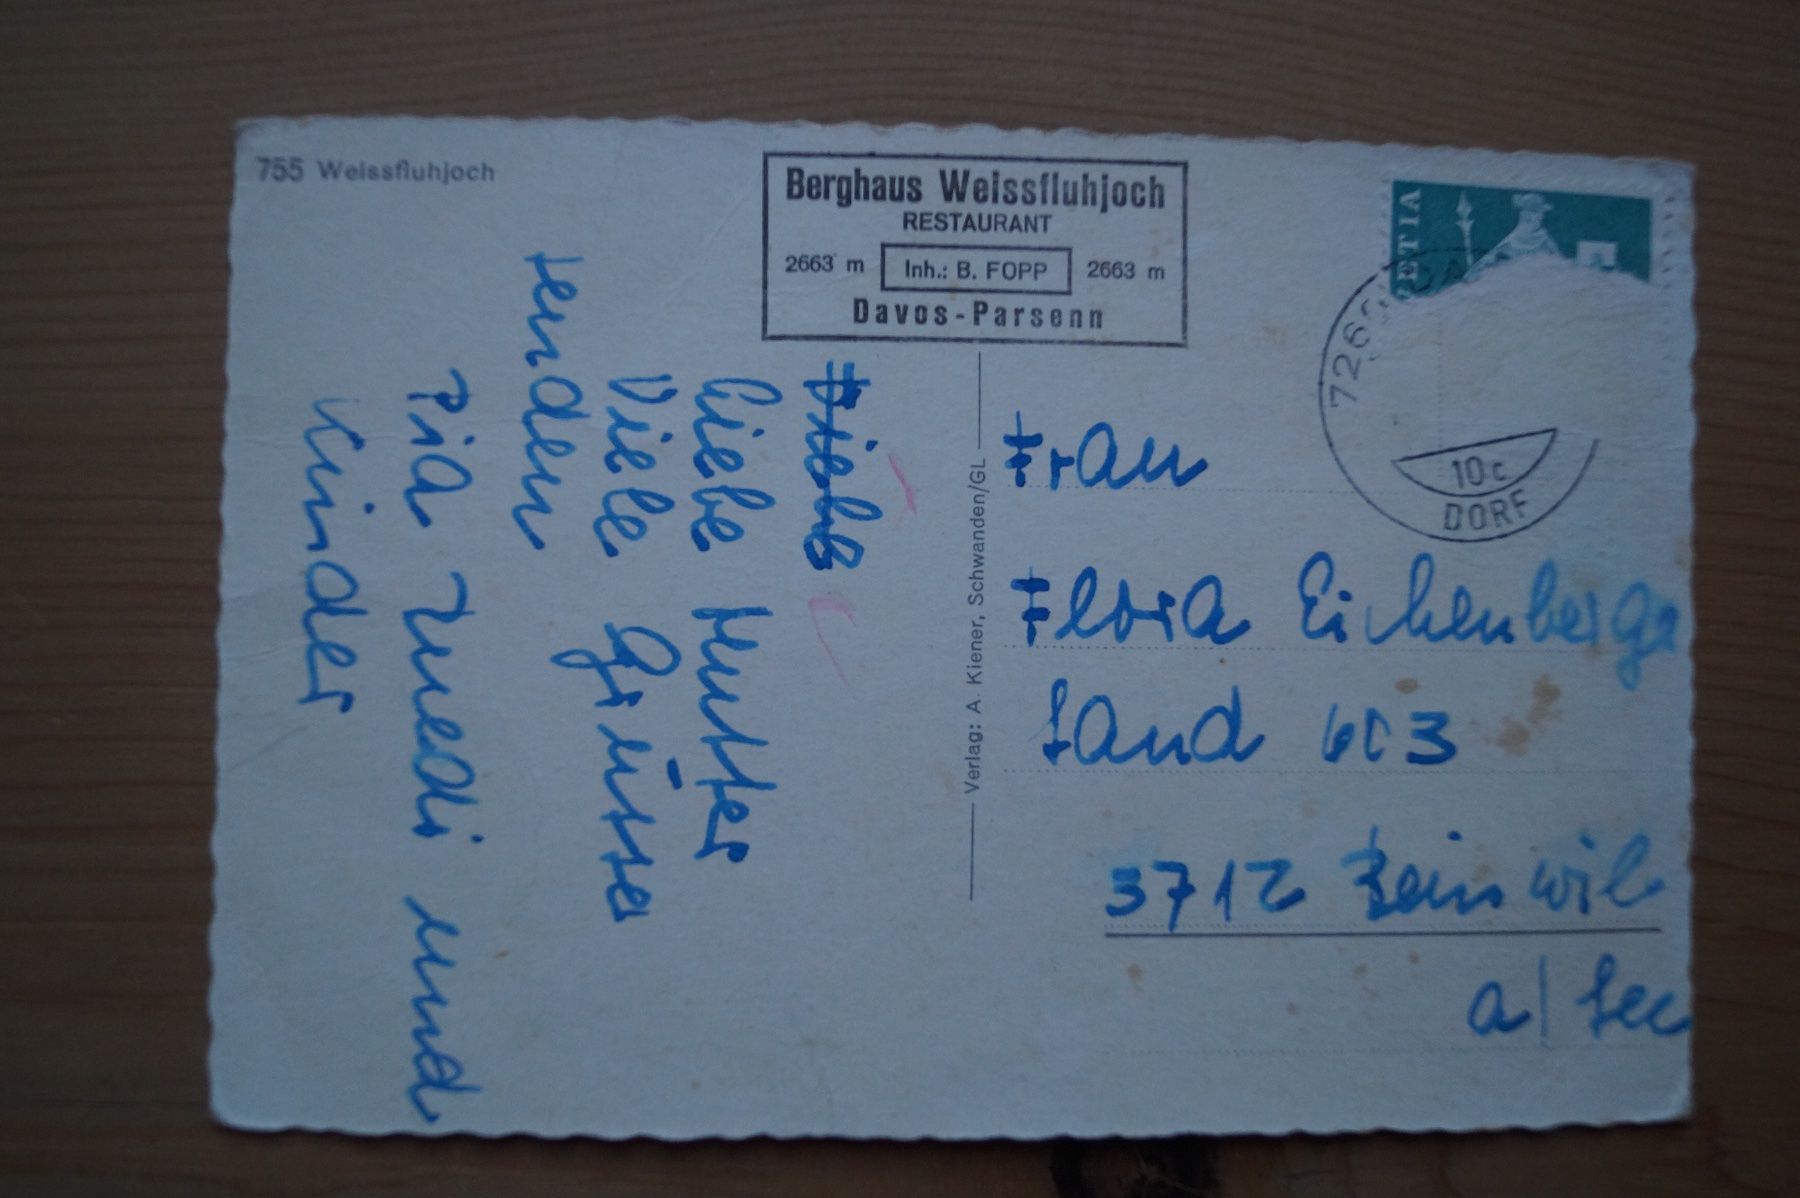 755 Weissfluhjoch
Berghaus Weissfluhjoch
RESTAURANT
2663 m Inh.: B. FOPP 2663 m
Davos-Parsenn
ETIA
7260
10c
DORF
Liebe Mutter
Viele Grüsse
senden
Pia Ruedi und
Kinder
Verlag: A. Kiener, Schwanden/GL
Frau
Flora Eichenberge
Sand 603
5712 Beinwil
a/See